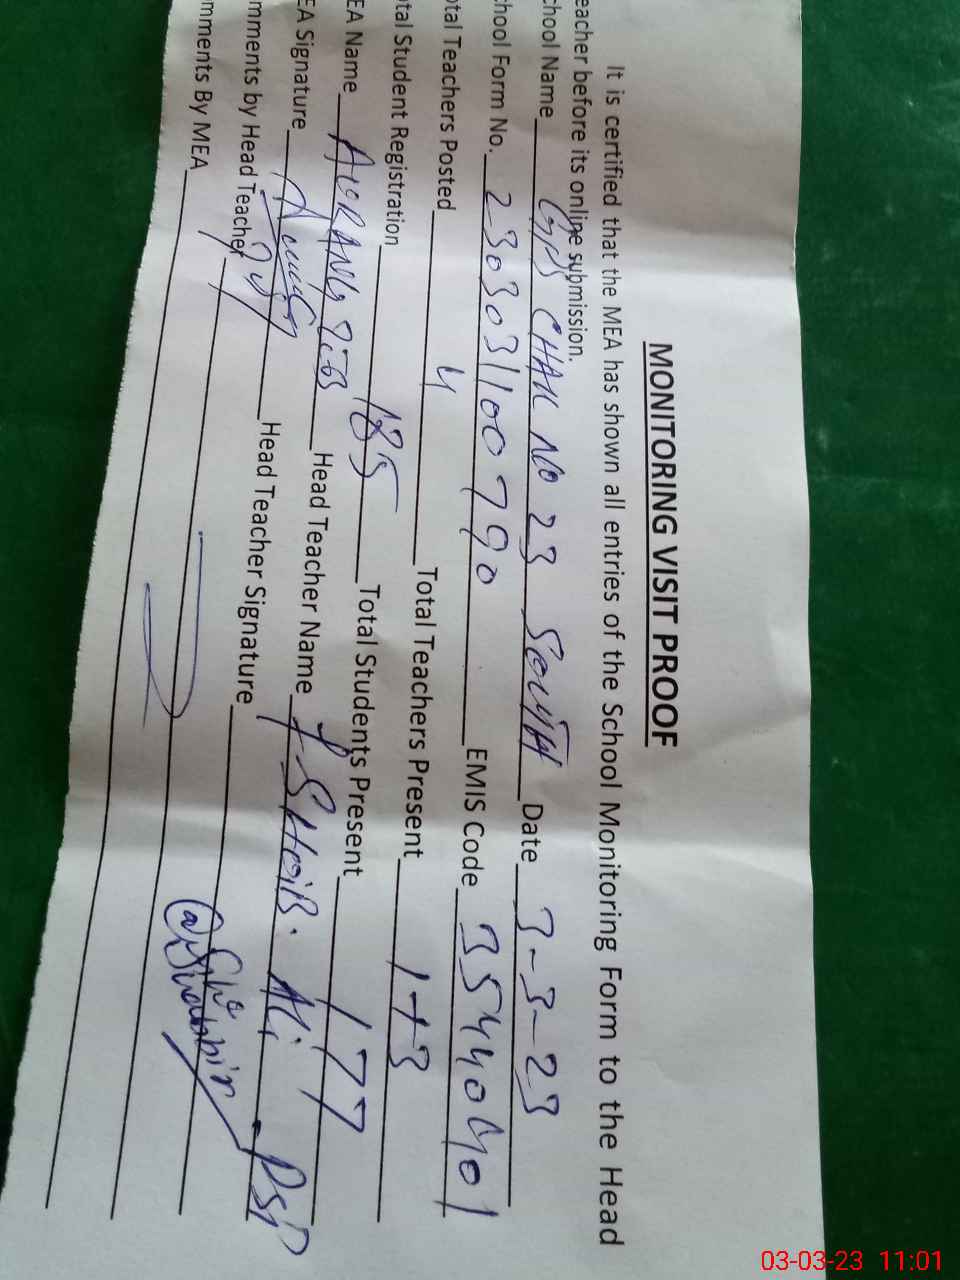 MONITORING VISIT PROOF
It is certified that the MEA has shown all entries of the School Monitoring Form to the Head
eacher before its online submission.
chool Name GPS CHAK NO 23 SOUTH Date 3-3-23
chool Form No. 2303031100790 EMIS Code 35440401
otal Teachers Posted 4 Total Teachers Present 1+3
otal Student Registration 185 Total Students Present 177
EA Name AURANGZEB Head Teacher Name SHOIB. Ali
EA Signature Head Teacher Signature
mments by Head Teacher
mments By MEA
03-03-23 11:01